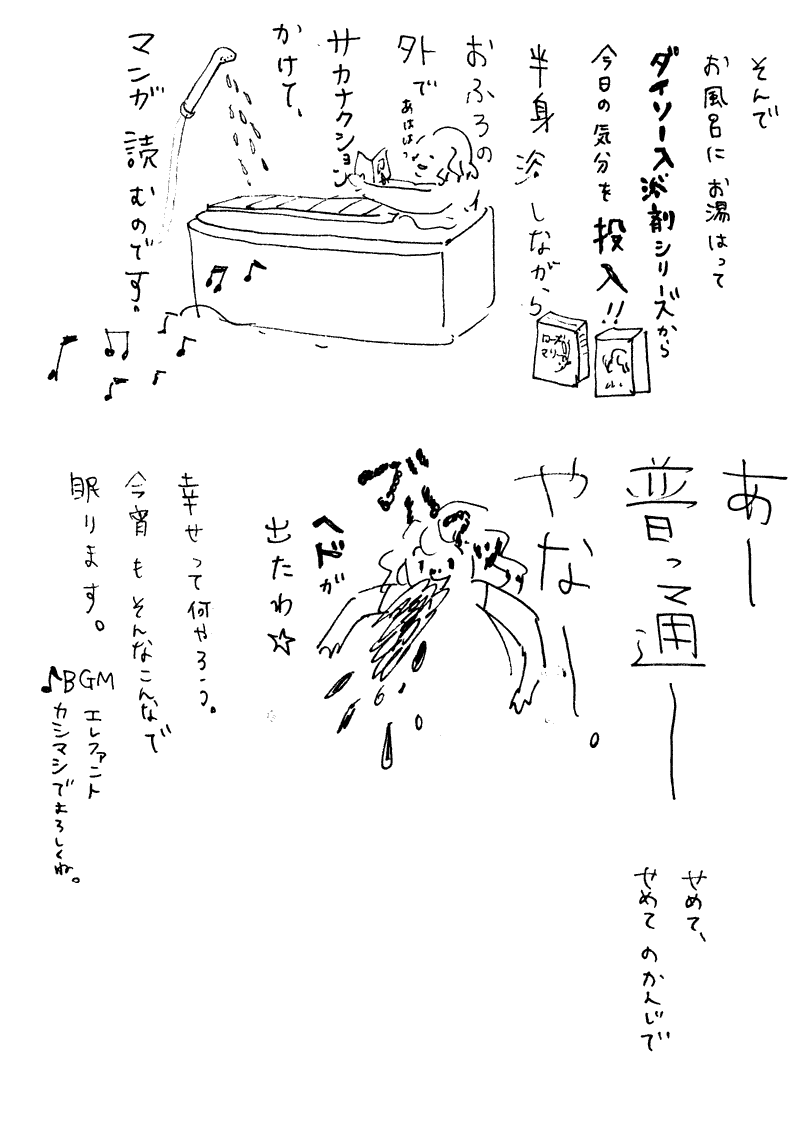 そんで
お風呂にお湯はって
ダイソー入浴剤シリーズから
今日の気分を投入!!
半身浴しながら
おふろの
外で
あははっ
サカナクション
かけて、
マンガ読むのです。
ローズ
マリー
あー
普っ通ー
やなー。
せめて、
せめてのかんじで
ブッ
ヘドが
出たわ☆
幸せって何やろう。
今宵もそんなこんなで
眠ります。
♪BGM
エレファント
カシマシでよろしくね。